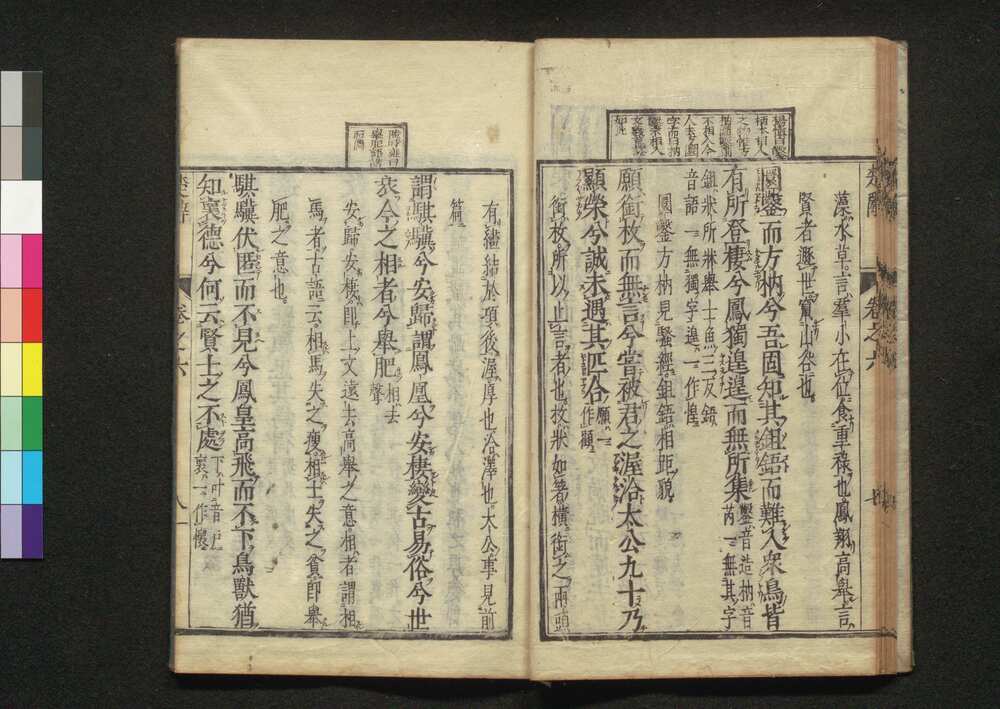 藻水草言羣小在位食重祿也鳳翔高舉言
賢者遯世竄山谷也
圜鑿而方枘兮吾固知其鉏鋙而難入衆鳥皆
有所登棲兮鳳獨遑遑而無所集鑿音造枘音
芮一無其字
鉏狀所淋舉士魚三反鋙
音語一無獨字遑一作惶
圓鑿方枘見騷經鉏鋙相距貌
願銜枚而無言兮嘗被君之渥洽太公九十乃
顯榮兮誠未遇其匹合願一
作顧
銜枚所以止言者也枚狀如箸橫銜之兩頭
楚辭
卷之六
有繣結於項後渥厚也洽澤也太公事見前
篇
謂騏驥兮安歸謂鳳凰兮安棲變古易俗兮世
衰今之相者兮舉肥相去
聲
安歸安棲即上文遠去高舉之意相者謂相
馬者古語云相馬失之瘦相士失之貧即舉
肥之意也
騏驥伏匿而不見兮鳳皇高飛而不下鳥獸猶
知褱德兮何云賢士之不處下叶音戶
褱一作懷
楚辭
卷之六
八